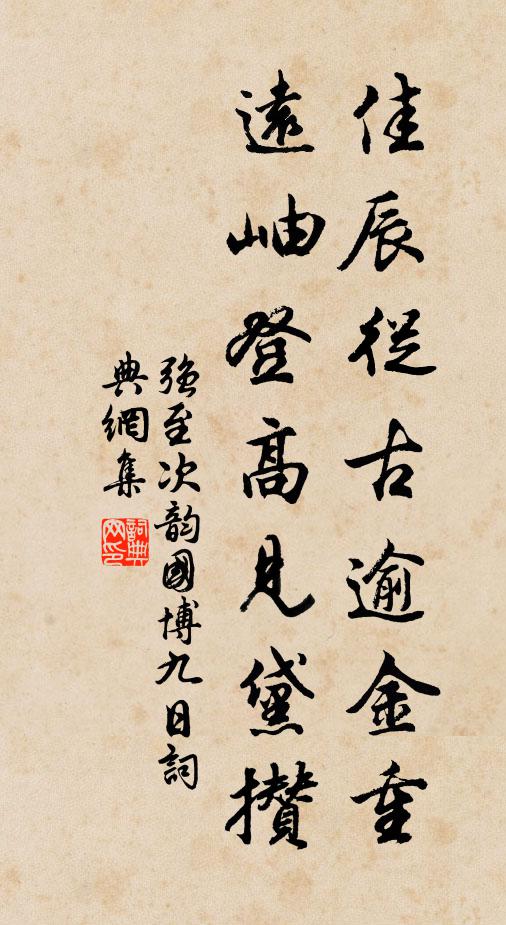 佳辰從古逾金重
遠岫登高見黛攢
強至次韵國博九日詞
典網集
詞典
网印